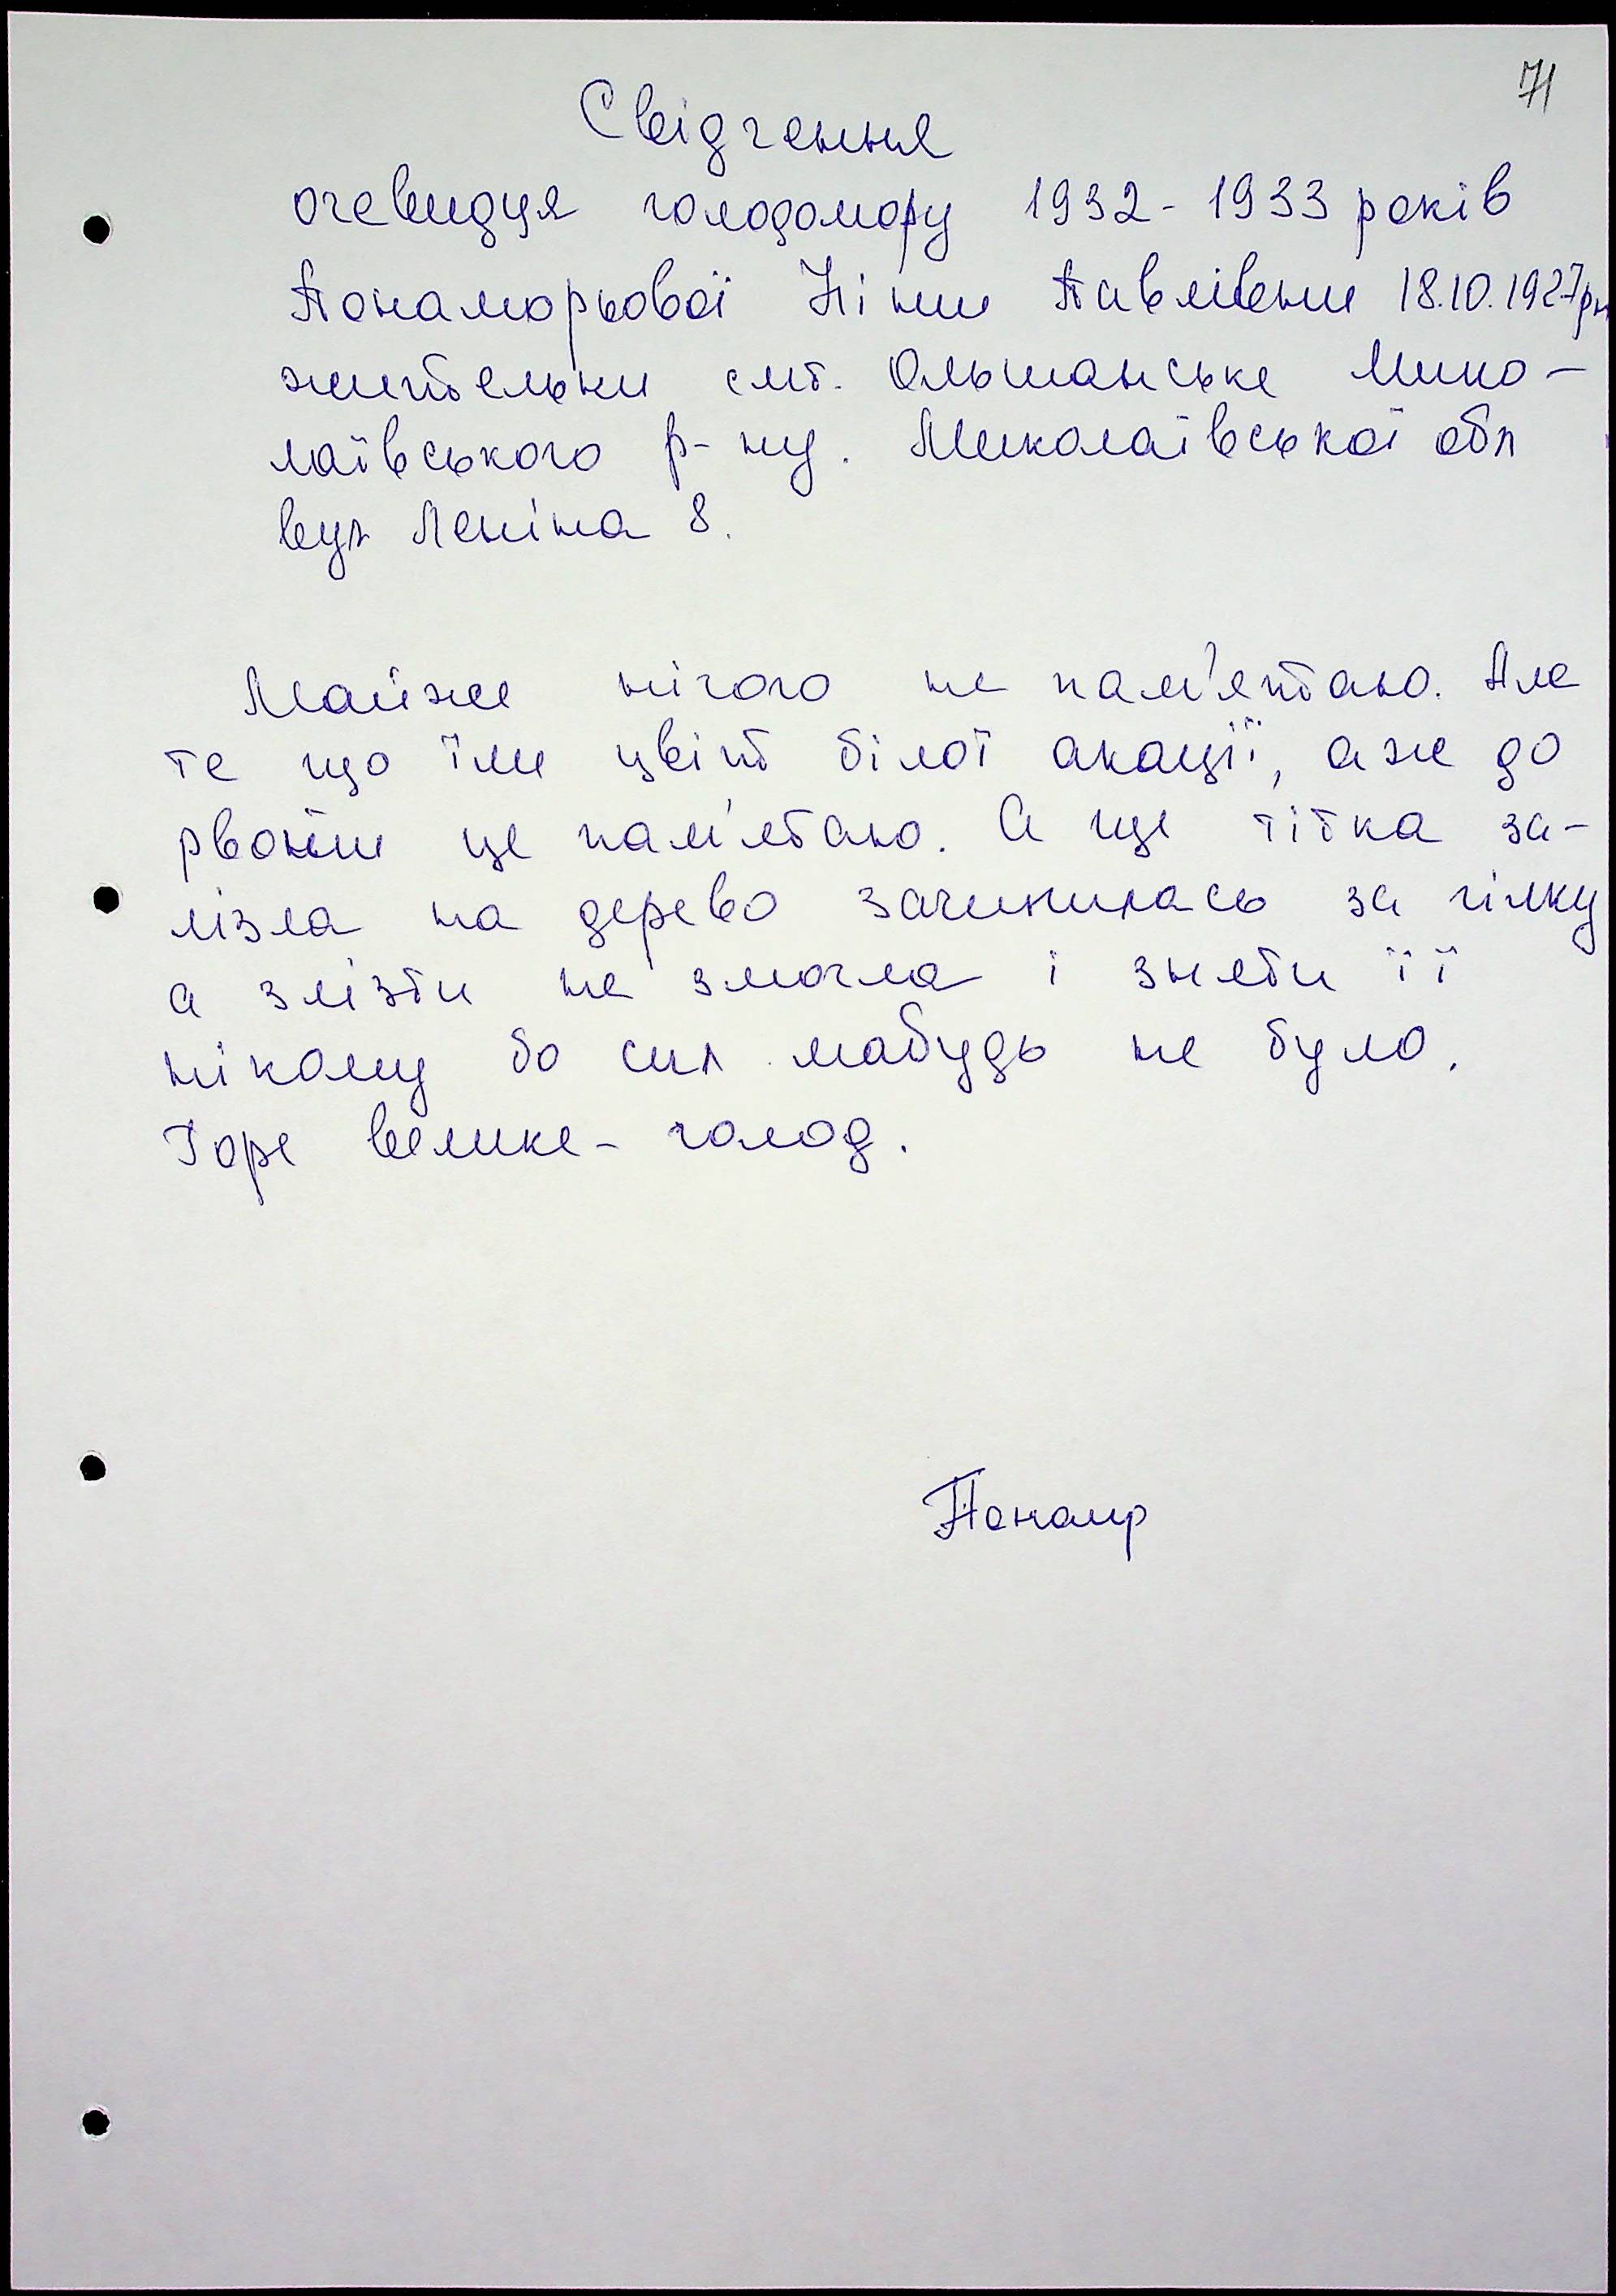 71
Свідчення
очевидця голодомору 1932-1933 років
Понаморьової Ніни Павлівни 18.10.1927рн
жительки смт. Ольшанське Мико-
лаївського р-ну. Миколаївської обл
вул Леніна 8.
Майже нічого не пам'ятаю. Але
те що їли цвіт білої акації, аже до
рвоти це пам'ятаю. А ще тітка за-
лізла на дерево зачинилась за гілку
а злізти не змогла і зняти її
нікому бо сил мабудь не було.
Горе велике- голод.
Понамр